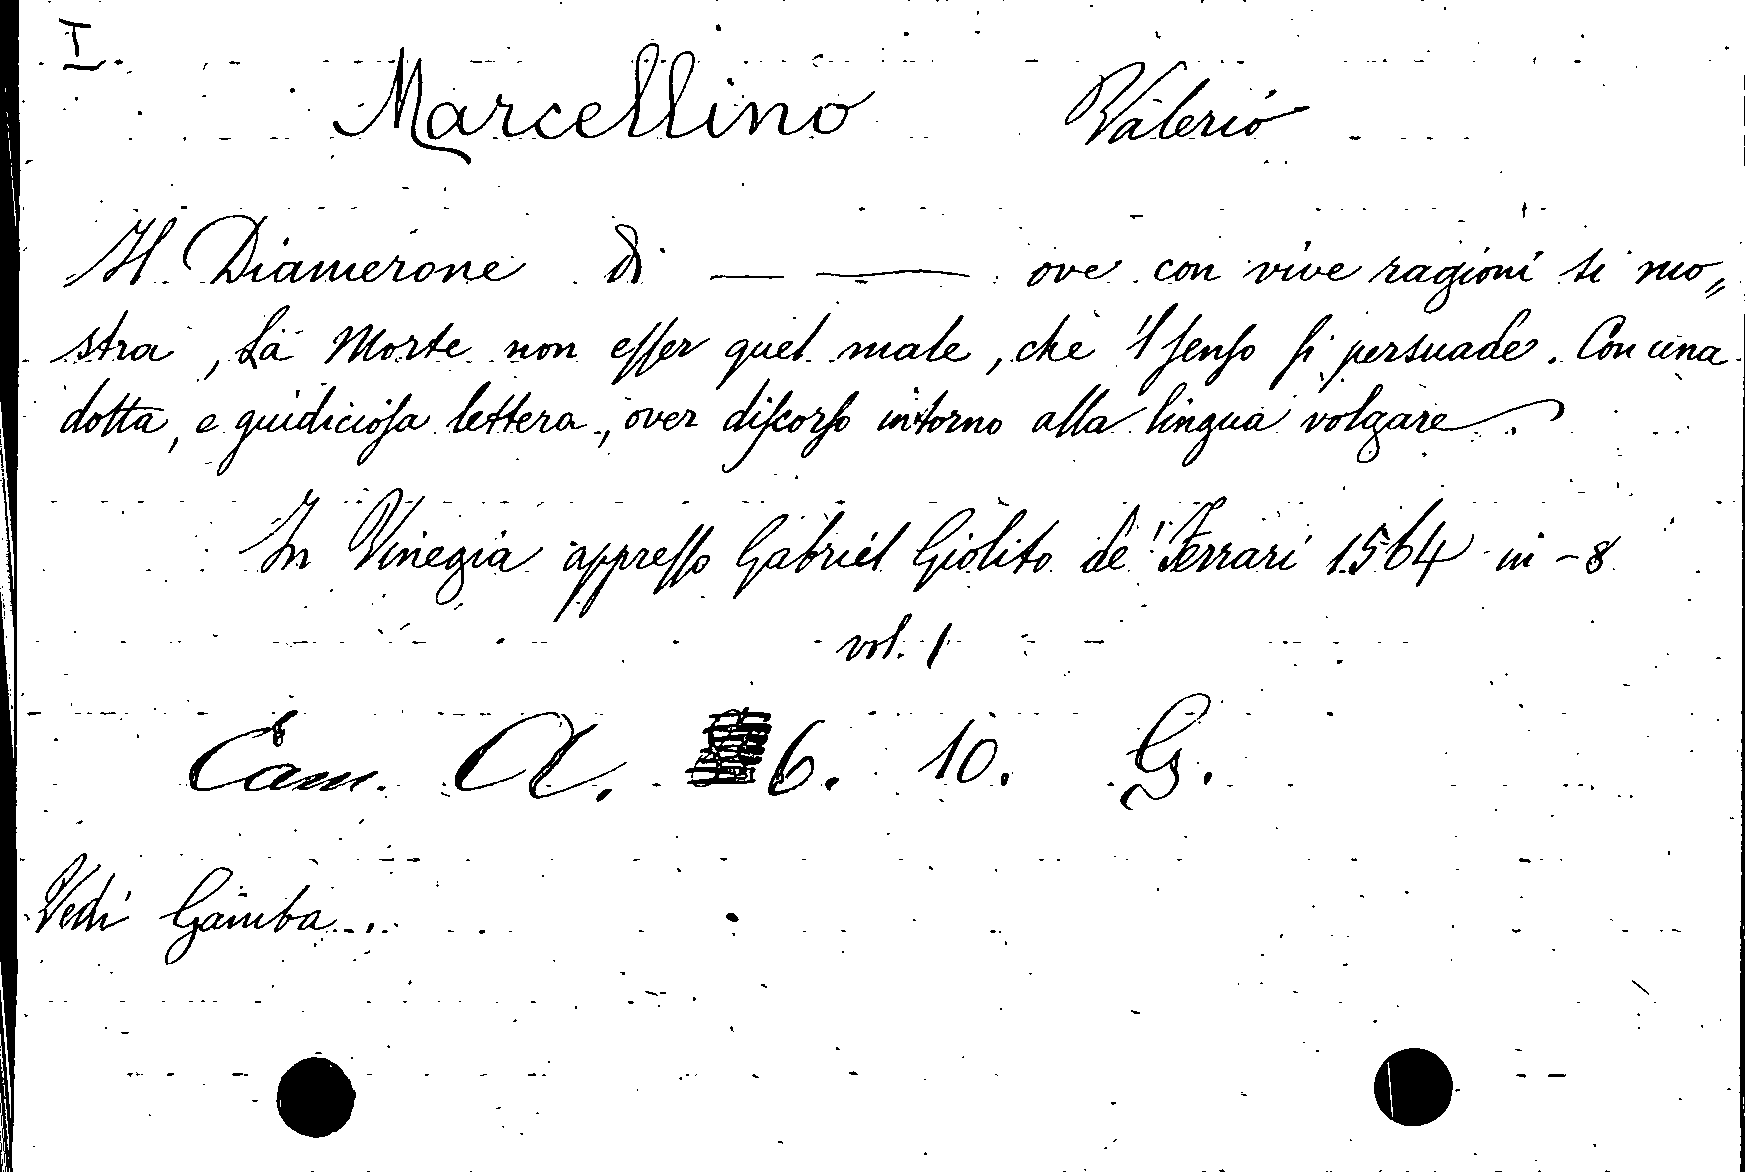 I.
Marcellino Valerio
Il Diamerone di — — ove con vive ragioni si mo„
stra, La Morte non esser quel male, che 'l senso si persuade. Con una
dotta, e guidiciosa lettera, over discorso intorno alla lingua volgare.
In Vinegia appresso Gabriel Giolito de' Ferrari 1564 in-8
vol. 1
Cam. A. 6. 10. G.
Vedi Gamba...